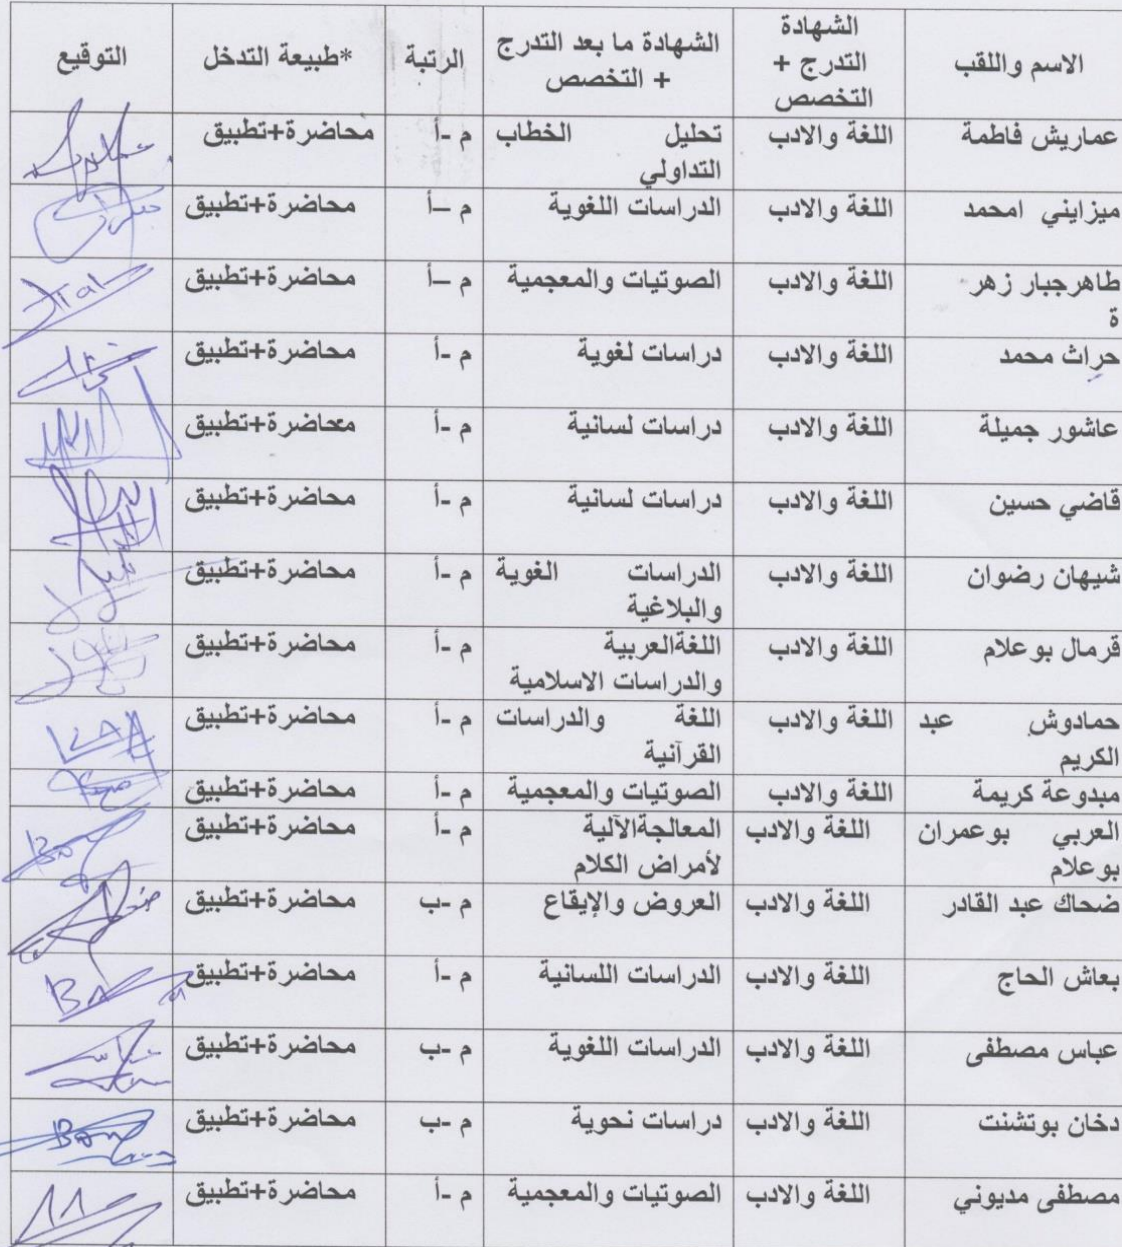 الاسم واللقب الشهادة التدرج + التخصص الشهادة ما بعد التدرج + التخصص الرتبة *طبيعة التدخل التوقيع
عماريش فاطمة اللغة والادب تحليل الخطاب التداولي م -أ محاضرة+تطبيق
ميزايني امحمد اللغة والادب الدراسات اللغوية م –أ محاضرة+تطبيق
طاهرجبار زهر ة اللغة والادب الصوتيات والمعجمية م –أ محاضرة+تطبيق
حراث محمد اللغة والادب دراسات لغوية م -أ محاضرة+تطبيق
عاشور جميلة اللغة والادب دراسات لسانية م -أ محاضرة+تطبيق
قاضي حسين اللغة والادب دراسات لسانية م -أ محاضرة+تطبيق
شيهان رضوان اللغة والادب الدراسات الغوية والبلاغية م -أ محاضرة+تطبيق
قرمال بوعلام اللغة والادب اللغةالعربية والدراسات الاسلامية م -أ محاضرة+تطبيق
حمادوش عبد الكريم اللغة والادب اللغة والدراسات القرآنية م -أ محاضرة+تطبيق
مبدوعة كريمة اللغة والادب الصوتيات والمعجمية م -أ محاضرة+تطبيق
العربي بوعمران بوعلام اللغة والادب المعالجةالآلية لأمراض الكلام م -أ محاضرة+تطبيق
ضحاك عبد القادر اللغة والادب العروض والإيقاع م -ب محاضرة+تطبيق
بعاش الحاج اللغة والادب الدراسات اللسانية م -أ محاضرة+تطبيق
عباس مصطفى اللغة والادب الدراسات اللغوية م -ب محاضرة+تطبيق
دخان بوتشنت اللغة والادب دراسات نحوية م -ب محاضرة+تطبيق
مصطفى مديوني اللغة والادب الصوتيات والمعجمية م -أ محاضرة+تطبيق